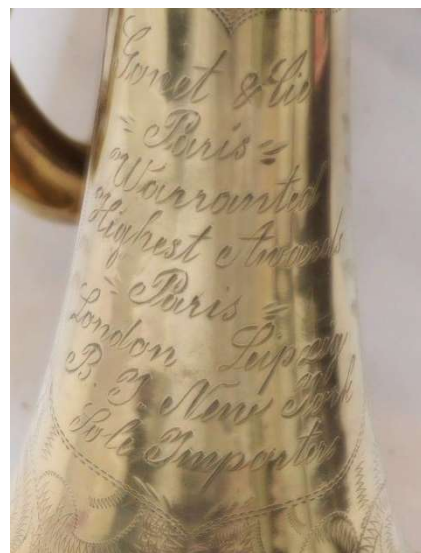 Gonet & Cie
Paris
Warranted
Highest Awards
Paris
London Leipzig
B. J. New York
Sole Importer